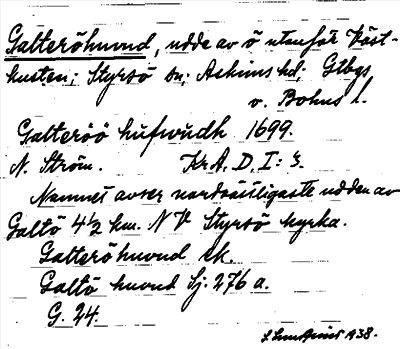 Galteröhuvud, udde av ö utanför Väst-
kusten; Styrsö sn; Askims hd; Gtbgs
o. Bohus l.
Galteröö hufwudh 1699.
N. Ström. Kr A. D, I: 3.
Namnet avser nordvästligaste udden av
Galtö 4½ km. NV Styrsö kyrka.
Galteröhuvud ek.
Galtö huvud Sj. 276 a.
G. 24.
1938.